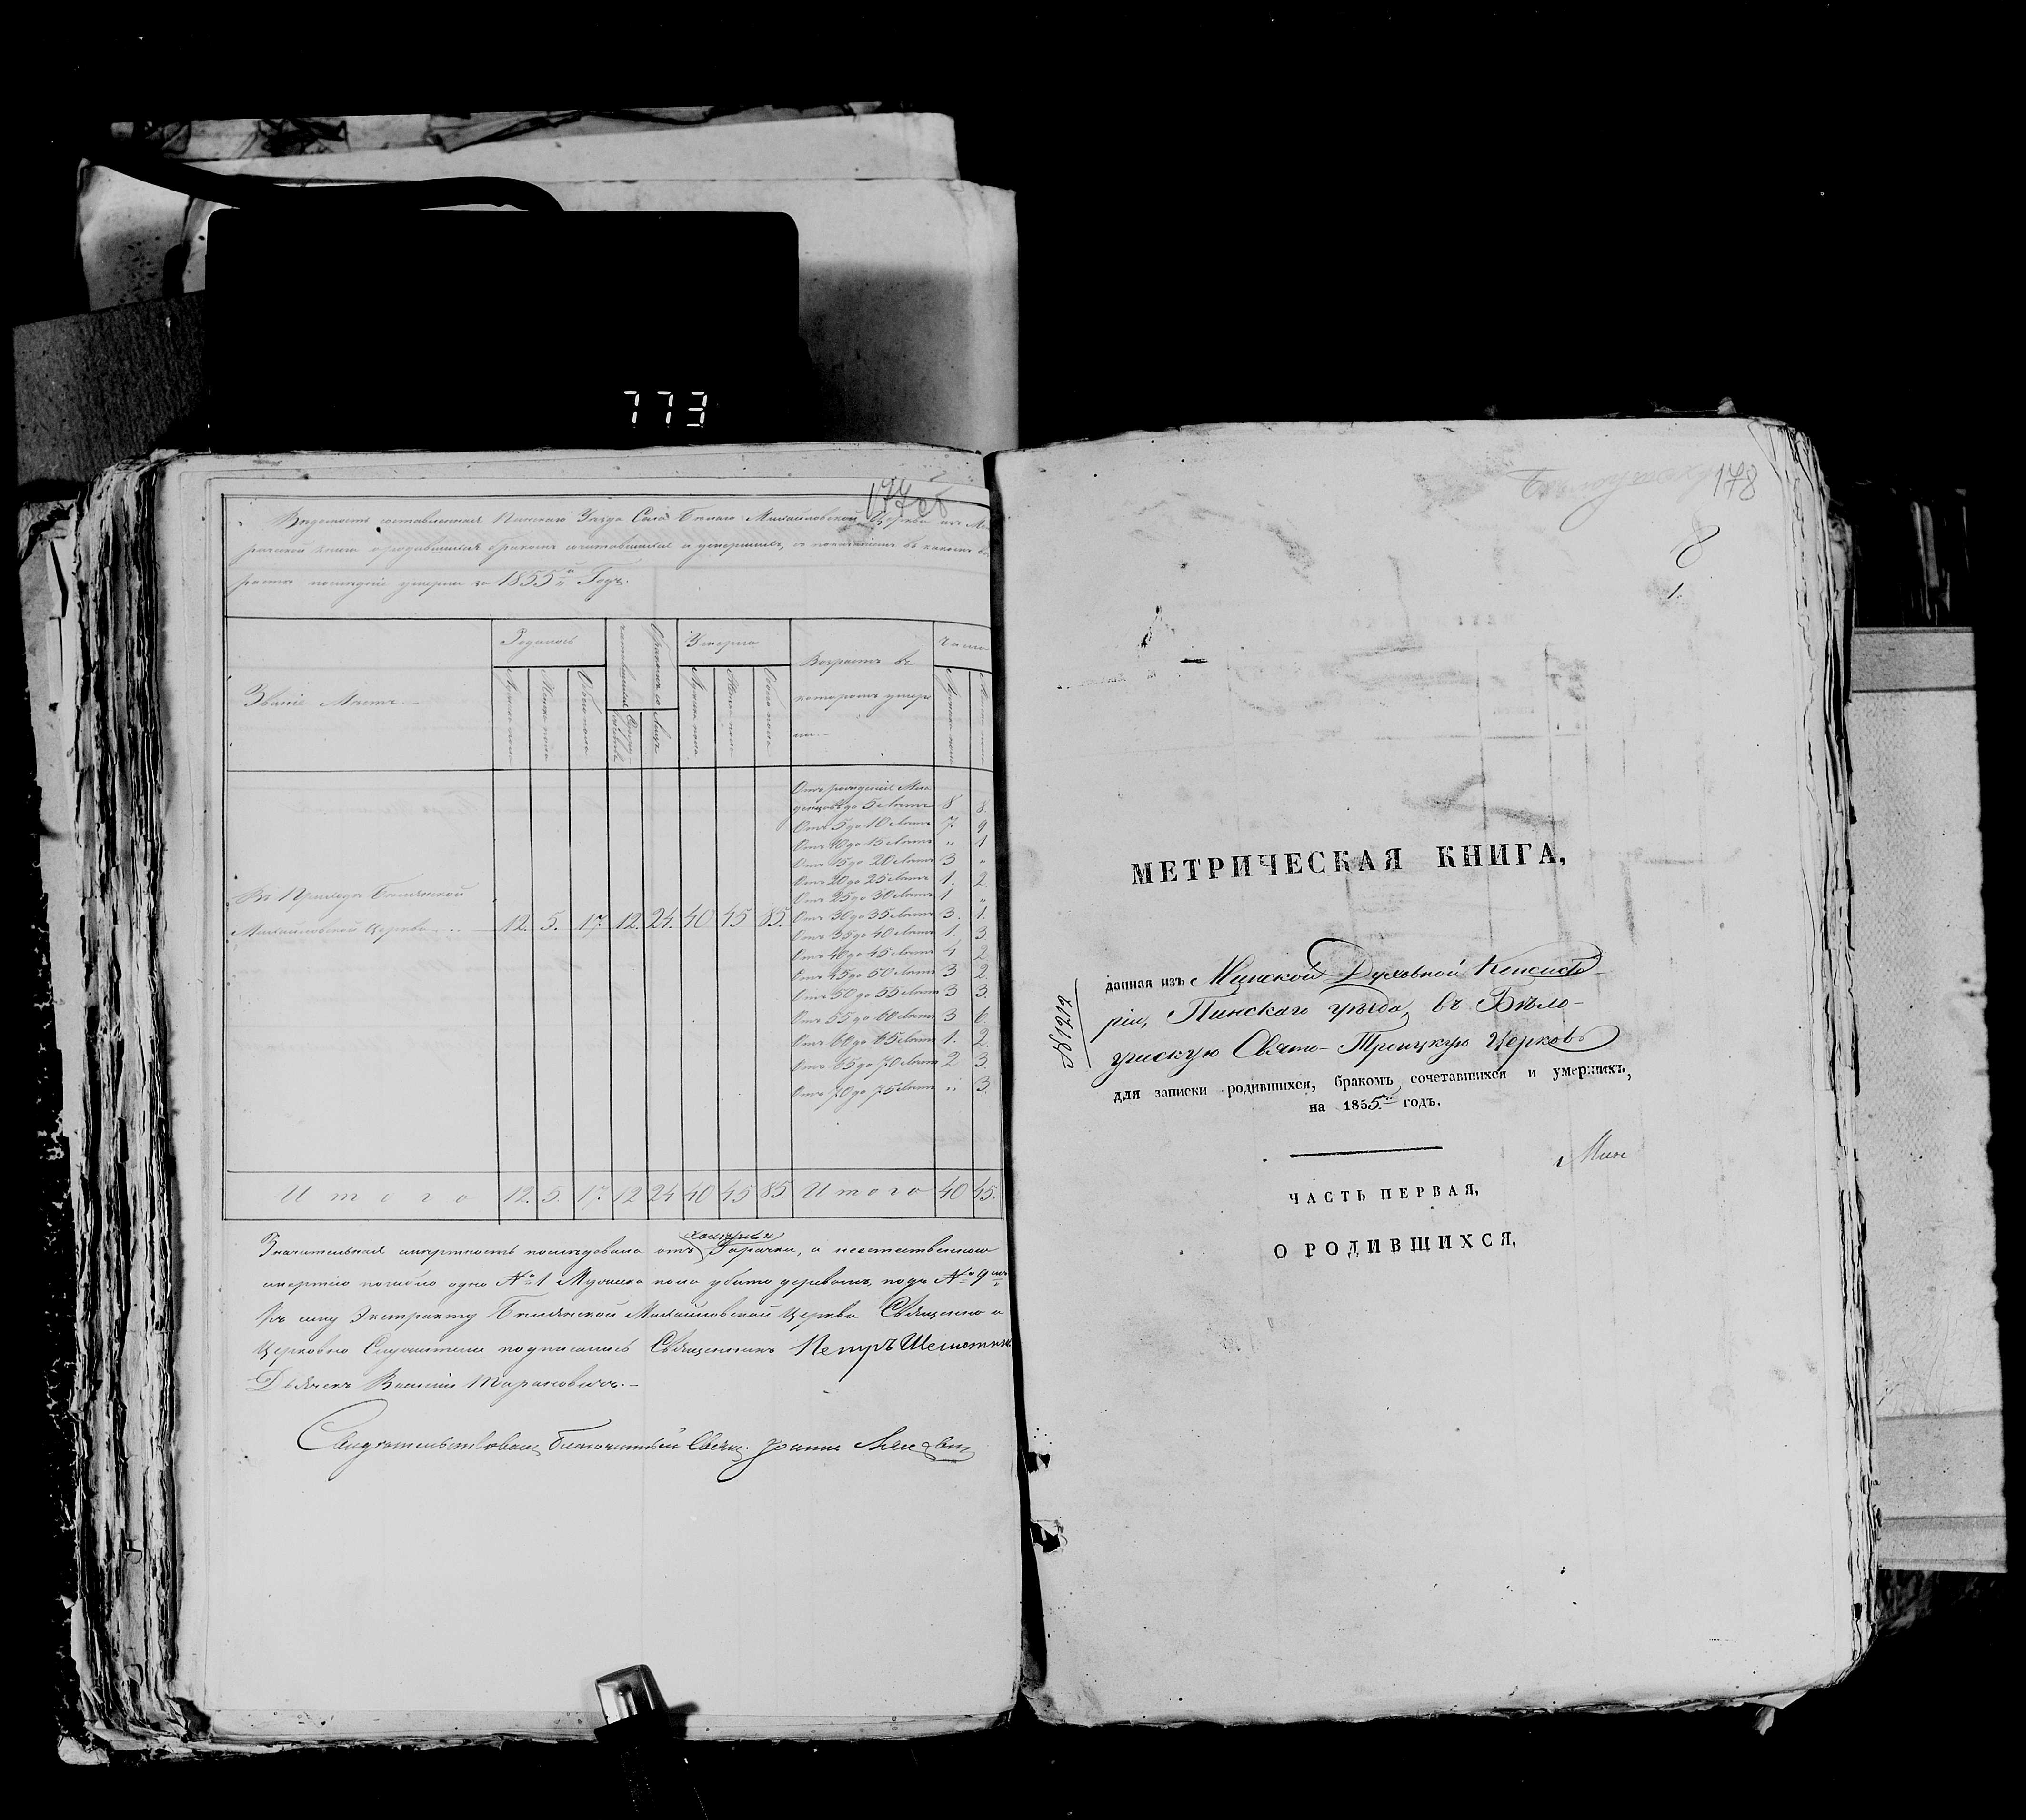 773
177об
Вѣдомость составленная Пинскаго Уѣзда Села Михайловской Церкви изъ
родившихся бракомъ сочетавшихся и умершихъ, съ показаніемъ въ какомъ
умерли за 1855й Годъ.
Званіе Мѣстъ
Родилось
Мужеска пола
Женска пола
Обоего пола
Бракомъ сочетавшихся
Лицъ
Умерло
Мужеска пола
Женска пола
Обоего пола
Возрастъ въ
которомъ умер-
ли.
Число
Мужеска пола
Женска пола
Отъ рожденія Мла-
денцовъ до 5 лѣтъ 8 8.
Отъ 5 до 10 лѣтъ 7. 9
Отъ 10 до 15 лѣтъ „ 1
Отъ 15 до 20 лѣтъ 3 „
Отъ 20 до 25 лѣтъ 1. 2
Отъ 25 до 30 лѣтъ 1 „
Отъ 30 до 35 лѣтъ 3. 1.
Отъ 35 до 40 лѣтъ 1. 3
Отъ 40 до 45 лѣтъ 4 2
Отъ 45 до 50 лѣтъ 3 2.
Отъ 50 до 55 лѣтъ 3 3.
Отъ 55 до 60 лѣтъ 3 6
Отъ 60 до 65 лѣтъ 1. 2.
Отъ 65 до 70 лѣтъ 2 3.
Отъ 70 до 75 лѣтъ „ 3.
Въ Приходѣ
Михайловской Церкви 12. 5. 17. 12. 24. 40 45 85.
Итого 12. 5. 17. 12 24 40 45 85 Итого 40 45.
холеры и
Значительная смертность послѣдовала отъ Горячки, а неестественною
смертію погибло одно №1 Мужеска пола убито деревомъ, подъ №9
Къ сему Экстракту Михайловской Церкви Священно и
Церковно Служители подписались Священникъ Петръ
Дьячекъ Василій Тарановичъ.
Свидѣтельствовалъ Благочинный Свящ. Іоаннъ
178
8
1.
МЕТРИЧЕСКАЯ КНИГА,
данная изъ Минской Духовной Консисто-
ріи, Пинскаго уѣзда, въ Бѣло-
ускую Свято-Троицкую Церковь
для записки родившихся, бракомъ сочетавшихся и умершихъ,
на 1855й годъ.
Мин
ЧАСТЬ ПЕРВАЯ,
О РОДИВШИХСЯ,